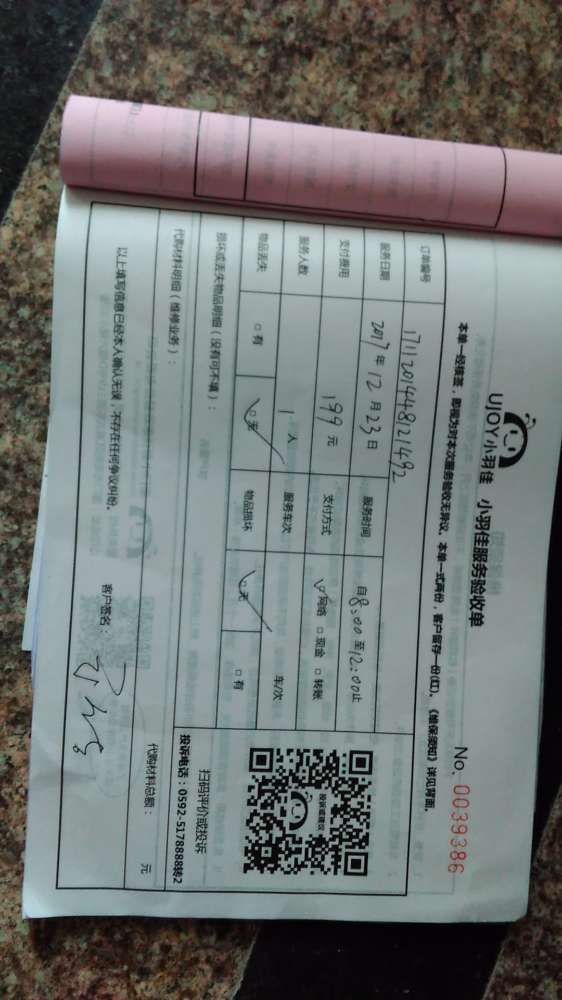 UJOY小羽佳 小羽佳服务验收单
No. 0039386
本单一经续签，即视为对本次服务验收无异议。本单一式两份，客户留存一份(红)。《维保须知》详见背面。
订单编号 1711201448121492
服务日期 2017年12月23日 服务时间 自8:00至12:00止
支付费用 199元 支付方式 ☑网络 □现金 □转账
服务人数 1人 服务车次 车/次
物品丢失 □有 ☑无 物品损坏 ☑无 □有
损坏或丢失物品明细（没有可不填）：
投诉或建议
扫码评价或投诉
投诉电话：0592-5178888转2
代购材料明细（维修业务）：
代购材料总额： 元
以上填写信息已经本人确认无误，不存在任何争议纠纷。
客户签名：